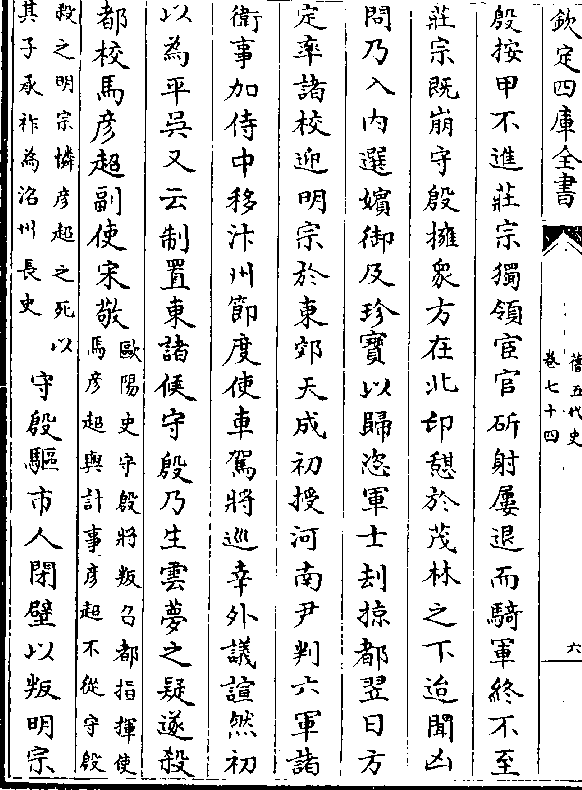 欽定四庫全書
舊五代史
卷七十四
六
殷按甲不進莊宗獨領宦官斫射屢退而騎軍終不至
莊宗既崩守殷擁衆方在北邙憩於茂林之下迨聞凶
問乃入内選嬪御及珍寶以歸恣軍士刦掠都翌日方
定率諸校迎明宗於東郊天成初授河南尹判六軍諸
衛事加侍中移汴州節度使車駕將巡幸外議諠然初
以為平吳又云制置東諸侯守殷乃生雲夢之疑遂殺
都校馬彦超副使宋敬
歐陽史守殷將叛召都指揮使
馬彦超與計事彦超不從守殷
殺之明宗憐彦超之死以
其子承祚為洺州長史
守殷驅市人閉壁以叛明宗